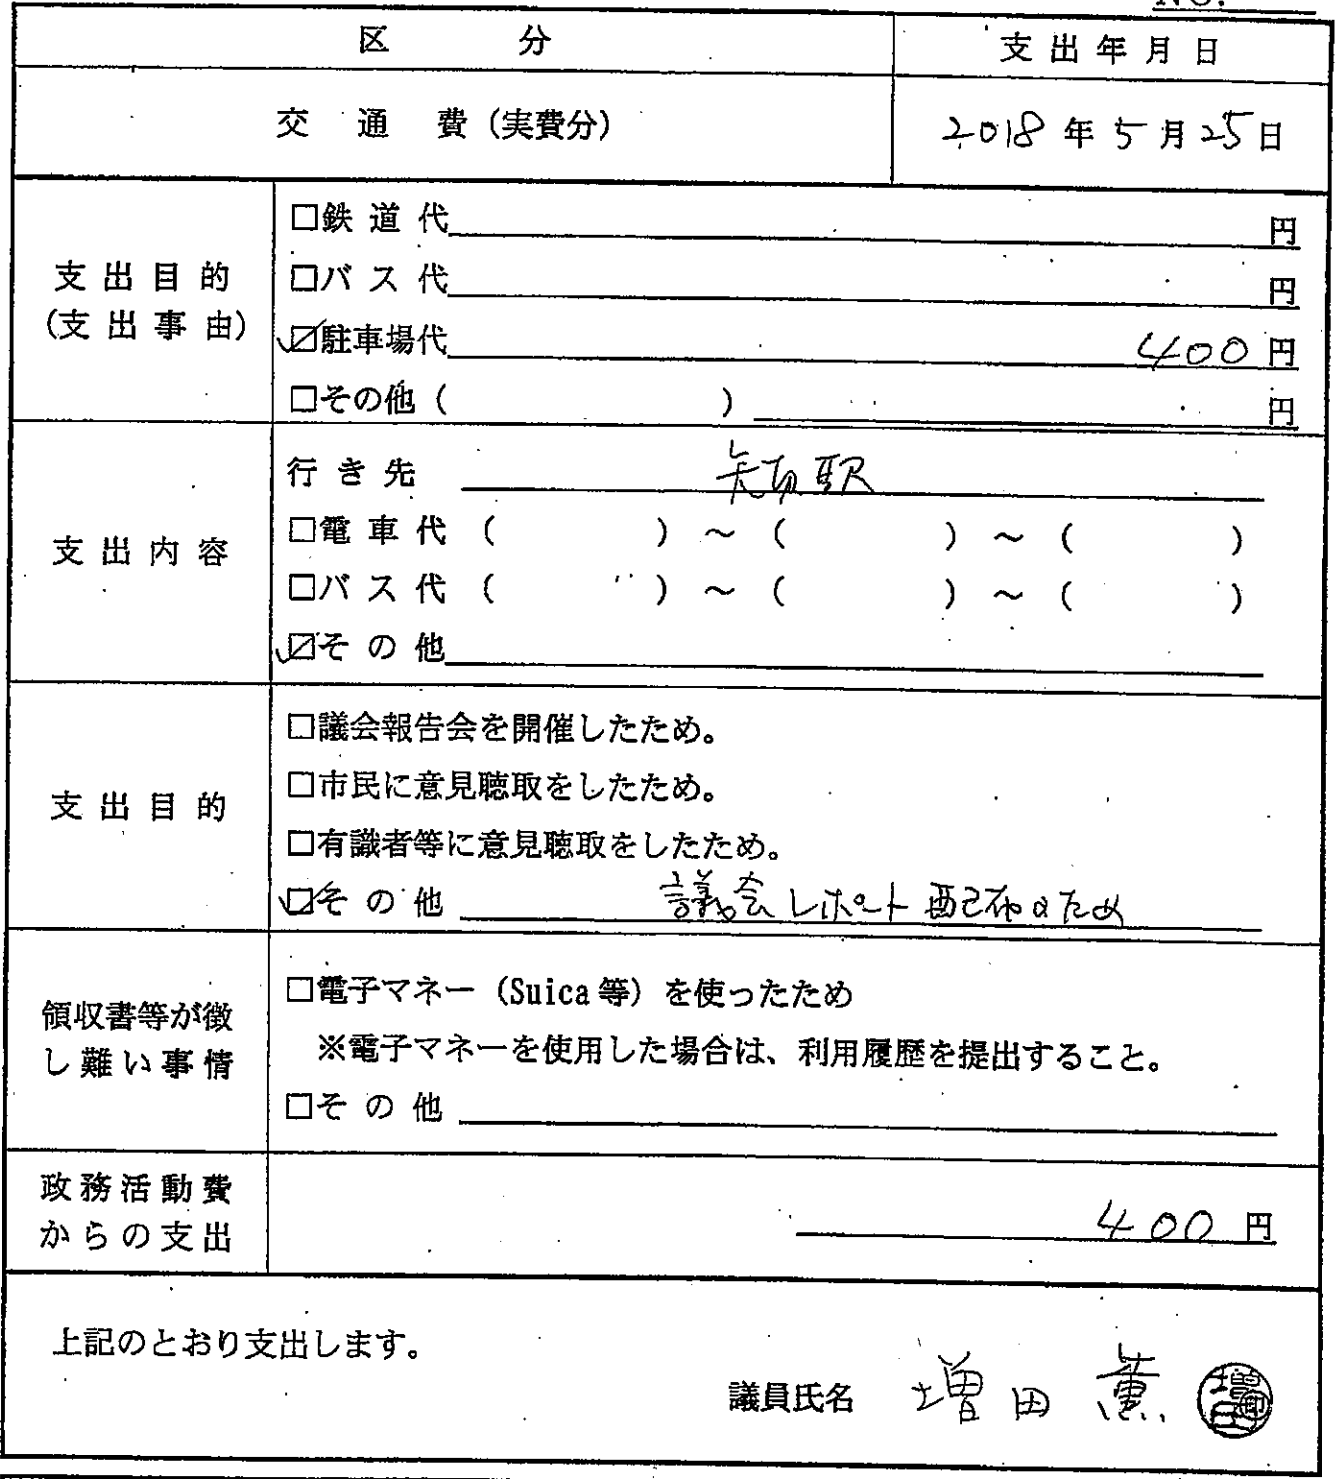 NO.
区 分 支出年月日
交 通 費（実費分） 2018年5月25日
支出目的
（支出事由）
□鉄道代 円
□バス代 円
☑駐車場代 400円
□その他（ ） 円
支出内容
行き先 矢切駅
□電車代（ ）～（ ）～（ ）
□バス代（ ）～（ ）～（ ）
☑その他
支出目的
□議会報告会を開催したため。
□市民に意見聴取をしたため。
□有識者等に意見聴取をしたため。
☑その他 議会レポート配布のため
領収書等が徴
し難い事情
□電子マネー（Suica等）を使ったため
※電子マネーを使用した場合は、利用履歴を提出すること。
□その他
政務活動費
からの支出
400円
上記のとおり支出します。
議員氏名 増田 薫